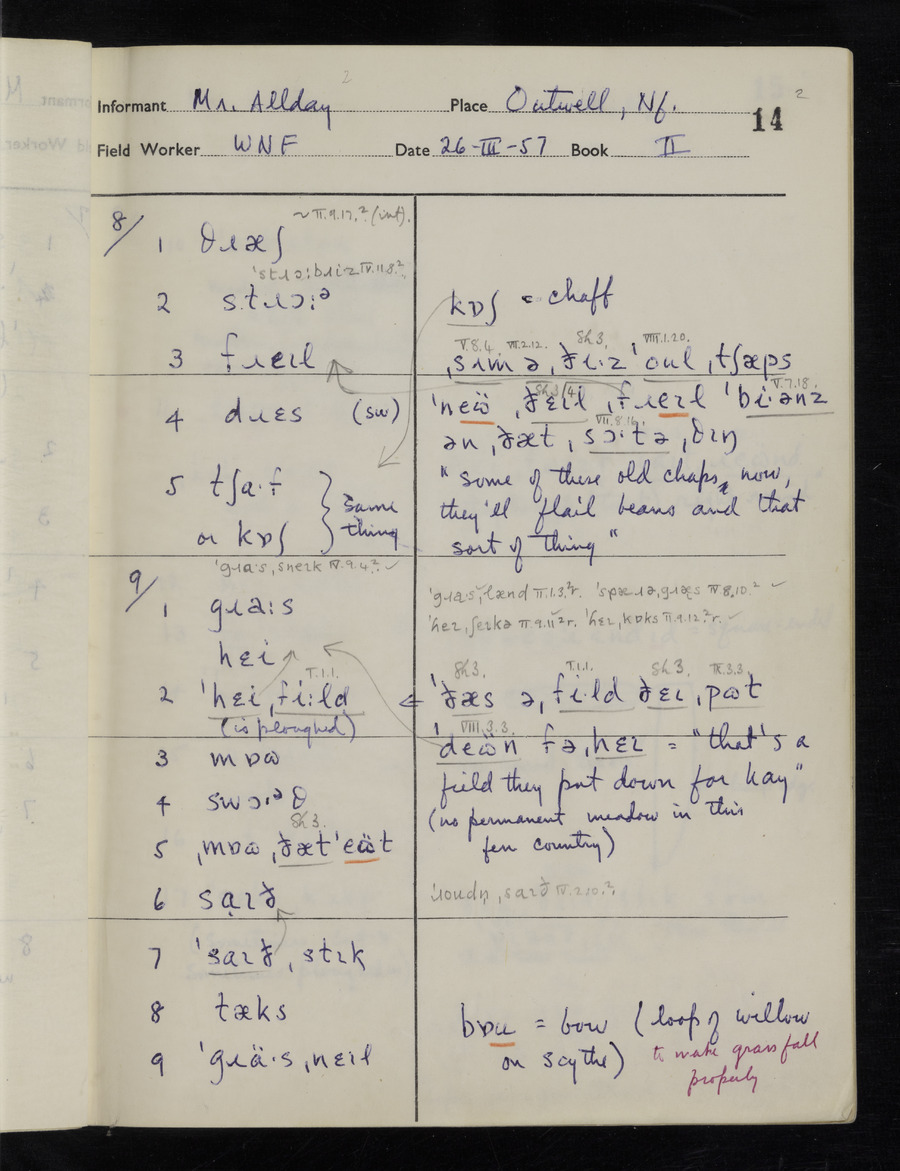 2
Informant Mr. Allday Place Outwell, Nf. 14 2
Field Worker WNF Date 26-III-57 Book II
~ II.9.17.² (int).
8/ 1 θɹæʃ
ˈstɹɔːbɹɪz IV.11.8.²
2 stɹɔːᵊ
kɒʃ = chaff
3 fɹɛɪl
V.8.4. VII.2.12. Sh 3. VIII.1.20.
ˌsɪm ə ˌðiːz ˈoʊl ˌtʃæps
Sh 3/4 V.7.18.
4 dɹɛs (sw)
ˈnɛö ˌðɛɪl ˌfɹɛɪl ˈbiˑənz
VII.8.16.
ən ˌðæt ˌsɔˑtə ˌθɪŋ
5 tʃaˑf
or kɒʃ } same thing
" Some of these old chaps, now,
they'll flail beans and that
sort of thing "
ˈgɹaːs, snɛɪk IV.9.4.² ✓
9/ 1 gɹaːs
ˈgɹaˑs, lænd II.1.3.²r. ˈspæɹə, gɹæs IV.8.10.² ✓
ˈhɛɪ, ʃɛɪkə II.9.11²r. ˈhɛɪ, kɒks II.9.12.²r. ✓
hɛi
I.1.1.
2 ˈhɛi ˌfiːld
(is ploughed)
Sh 3. I.1.1. Sh 3. IX.3.3.
ˈðæs ə ˌfiˑld ðɛɪ ˌpɷt
VIII.3.3.
ˈdɛön fə ˌhɛɪ = "that's a
field they put down for hay"
(no permanent meadow in this
fen country)
3 mɒɷ
4 swɔːᵊθ
Sh 3.
5 ˌmɒɷ ˌðæt ˈɛöt
6 saɪð
ˈɹoʊdn̩, saɪð IV.2.10.²
7 ˈsaɪð, stɪk
8 tæks
9 ˈgɹäˑs, nɛɪl
bɒu = bow (loop of willow
on scythe) to make grass fall
properly